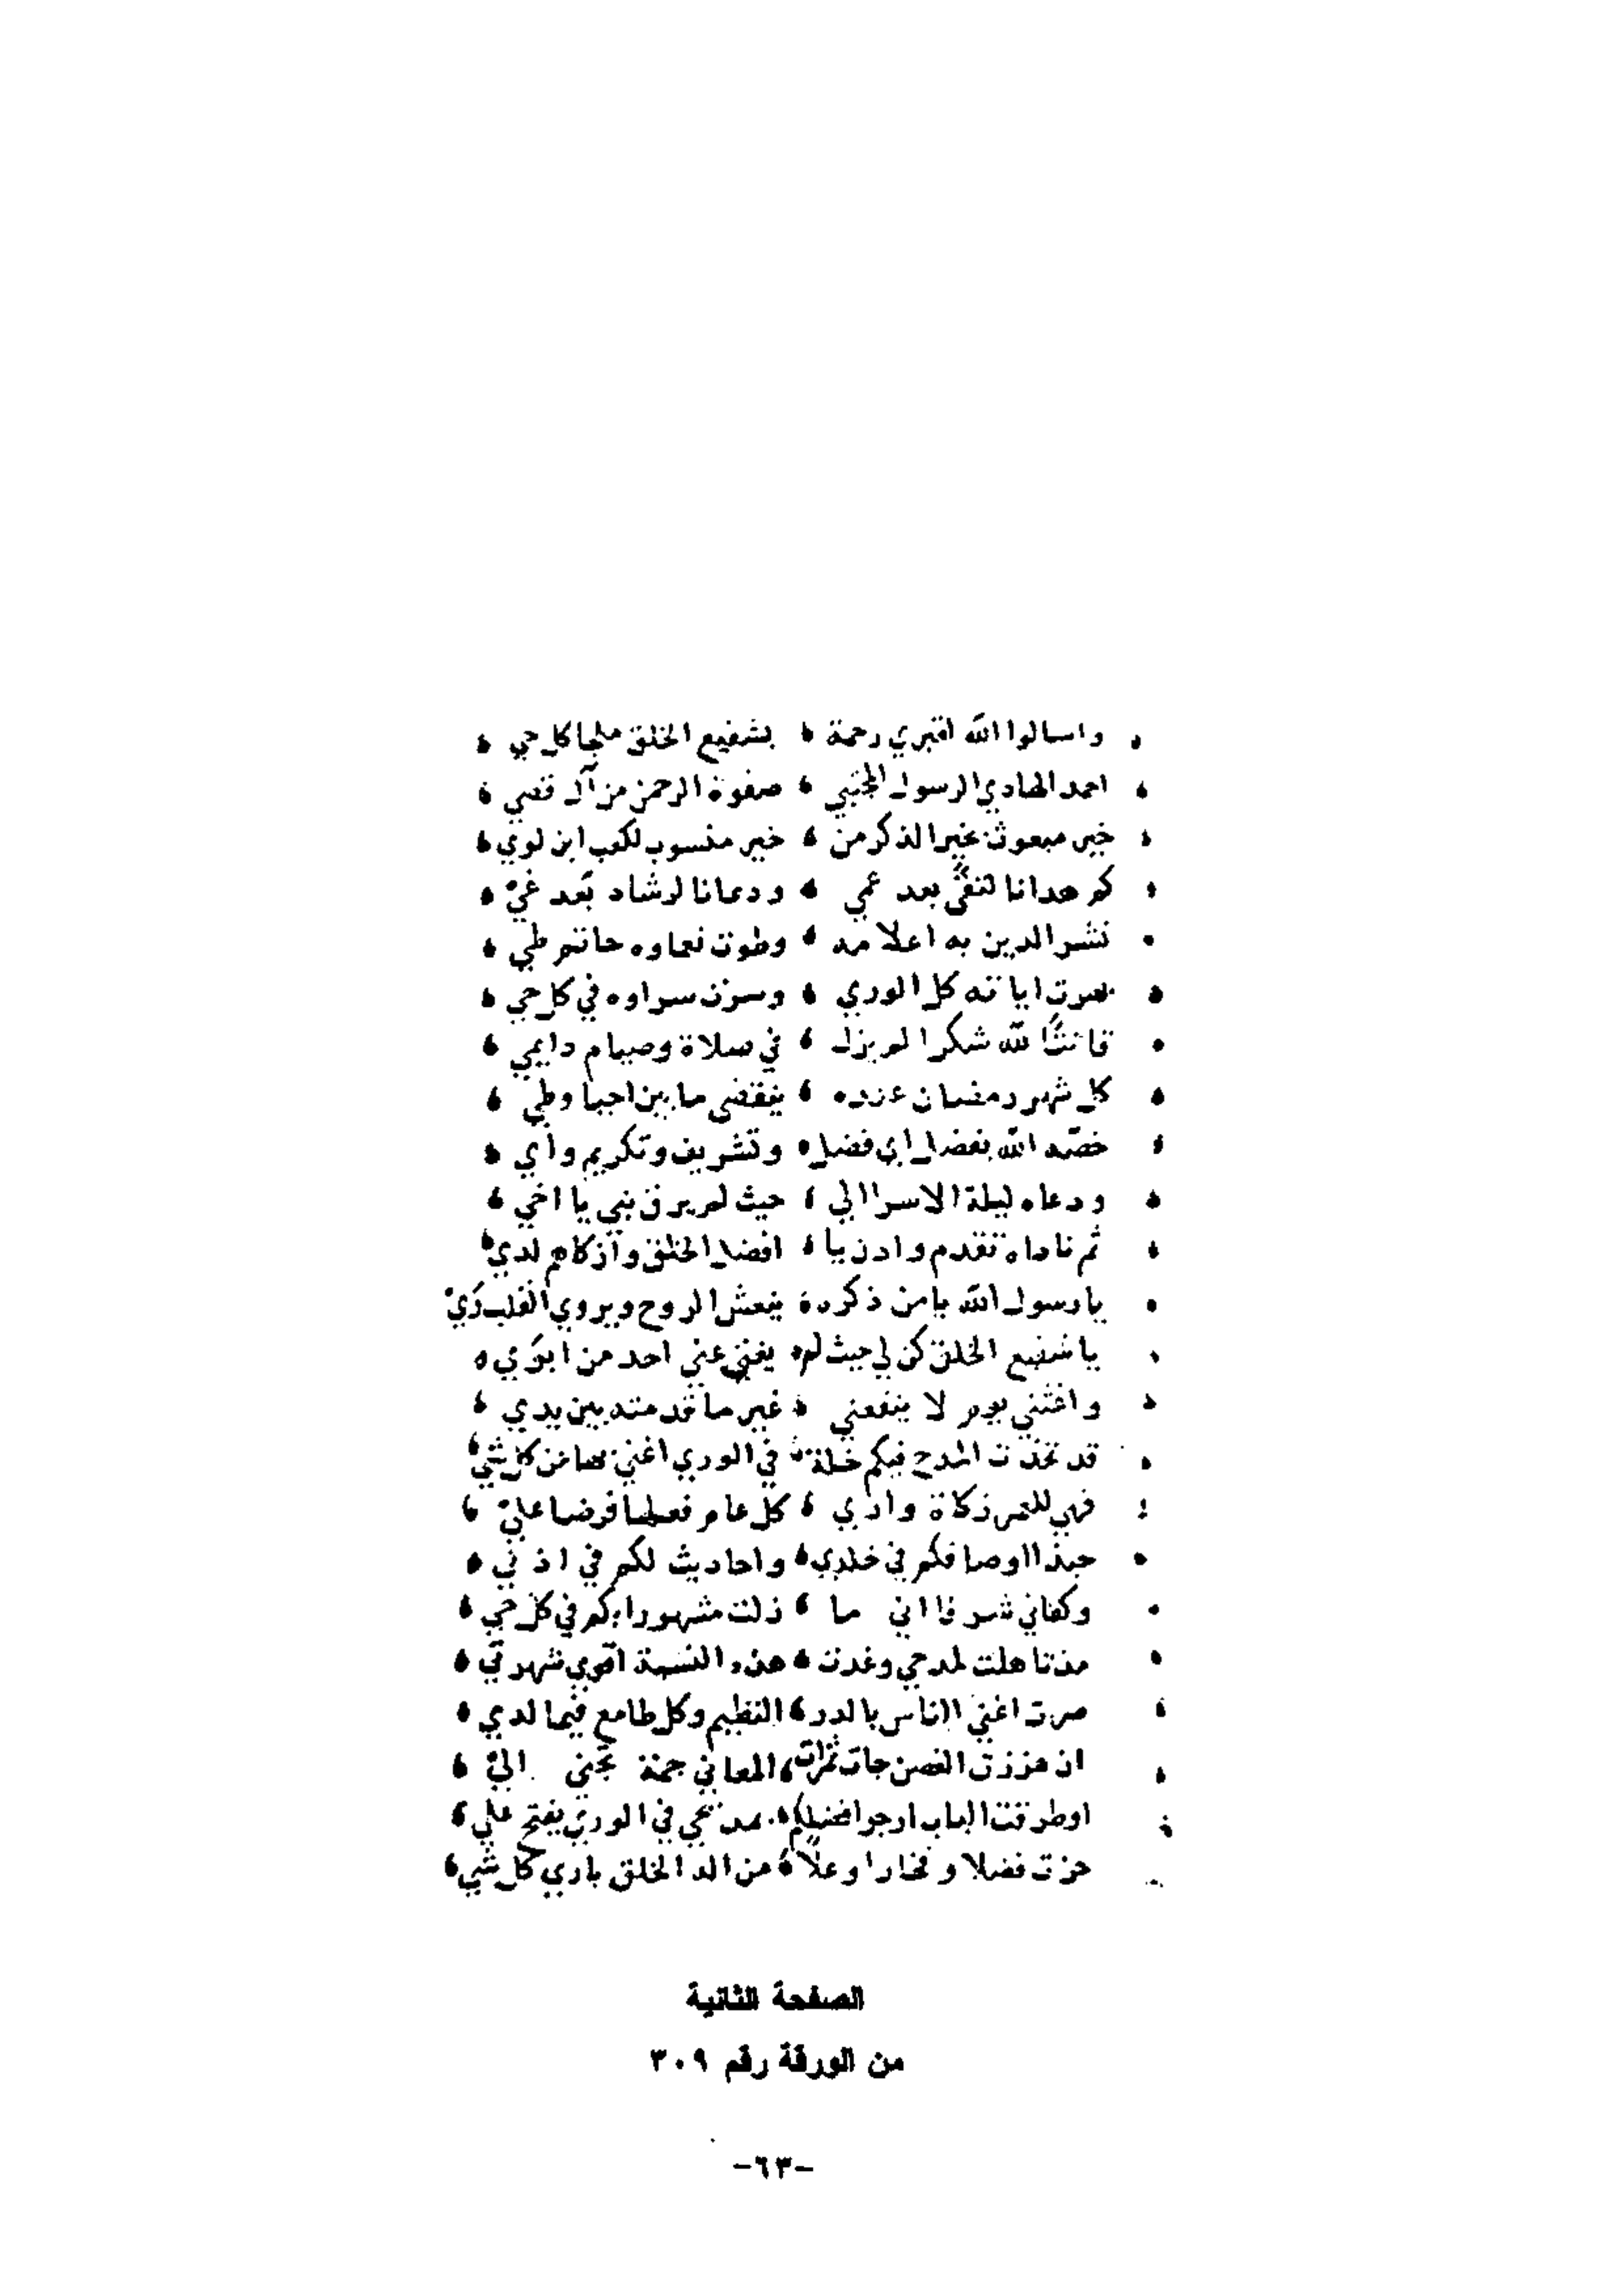 واسالوا الله لقبري رحمة بشفيع الخلق ملجا كل حي
احمد الهادي الرسول المجتبي صفوة الرحمن من آل قصي
خير مبعوث بخير الذكر من خير منسوب لكعب ابن لوي
كم هدانا لتقيً بعد عمي ودعانا لرشاد بعد غيّ
نشر الدين به اعلامه وطوت نعماوه حاتم طي
بهرت اياته كل الوري وسرت سراوه في كل حي
قانتًا لله شكرا لم يزل في صلاة وصيام دايمي
كل شهر رمضان عنده ينقضي ما بين احيا وطي
خصّه الله بفضل اي فضل وتشريف وتكريم واي
ودعاه ليلة الاسرا الي حيث لم يرق نبي يا اخي
ثم ناداه تقدم وادن يا افضل الخلق وازكاهم لدي
يا رسول الله يا من ذكره ينعش الروح ويروي القلب ريّ
يا شفيع الخلق كن لي حيث لم يغني عني احد من ابوي
واغثني يوم لا ينفعني غير ما قدمته بين يدي
قد تخذت المدح فيكم خلة في الوري اغني بها عن كل شي
فهي للعمر زكاة واري كل عام فعلها فرضا عليّ
حبذا اوصافكم في خلدي واحاديث لكم في اذني
وكفاني شرفا اني ما زلت مشهورا بكم في كل حي
مذ تاهلت لمدحي وغدت هذه النسبة اقوي شهرتي
صرت اغني الناس بالدر النظيم وكل طامع فيما لدي
ان هززت الغصن جات ثمرات المعاني جمة تجني اليّ
او طرقت الباب ارجو افضلكم مدحي في الوري يفتح علي
حزت فضلا وفخارا وعلًا من اله الخلق باري كل شي
الصفحة الثانية
من الورقة رقم ٣٠٩
-٦٣-